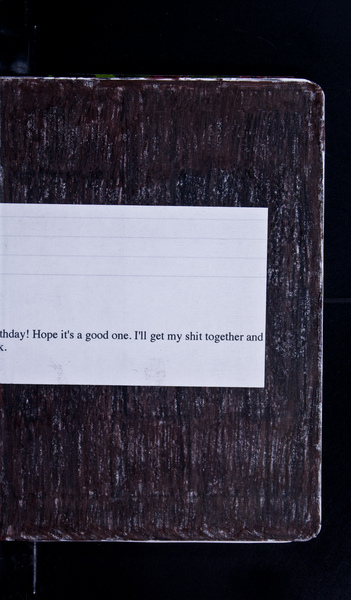 thday! Hope it's a good one. I'll get my shit together and
k.